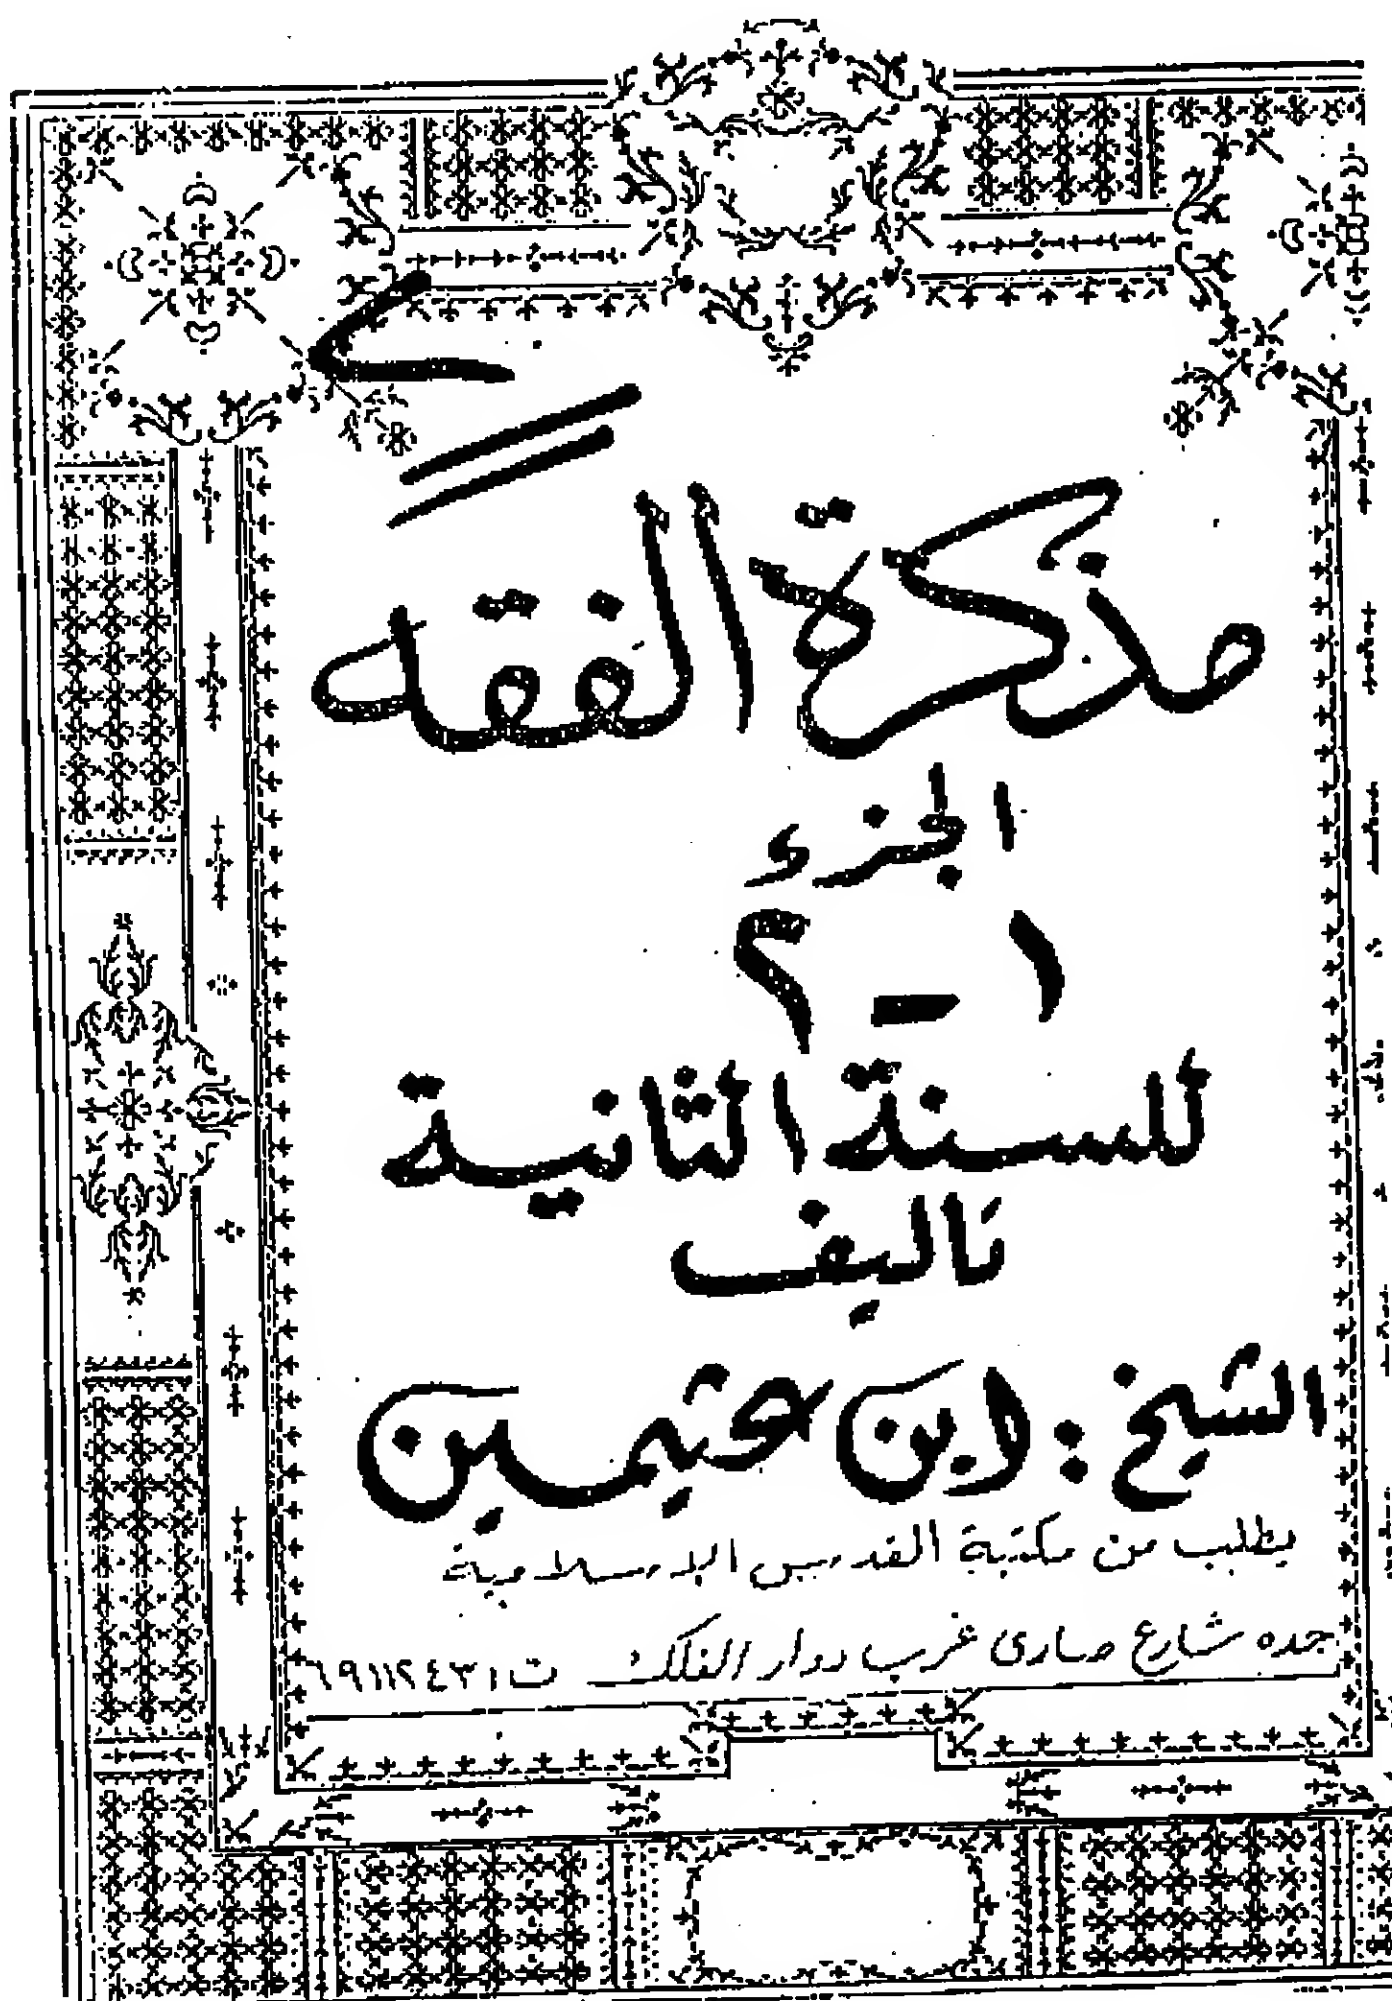 مذكرة الفقه
الجزء
١ - ٢
للسنة الثانية
تاليف
الشيخ : ابن عثيمين
يطلب من مكتبة القدس الإسلامية
جده شارع صارى غرب دوار الفلك ت